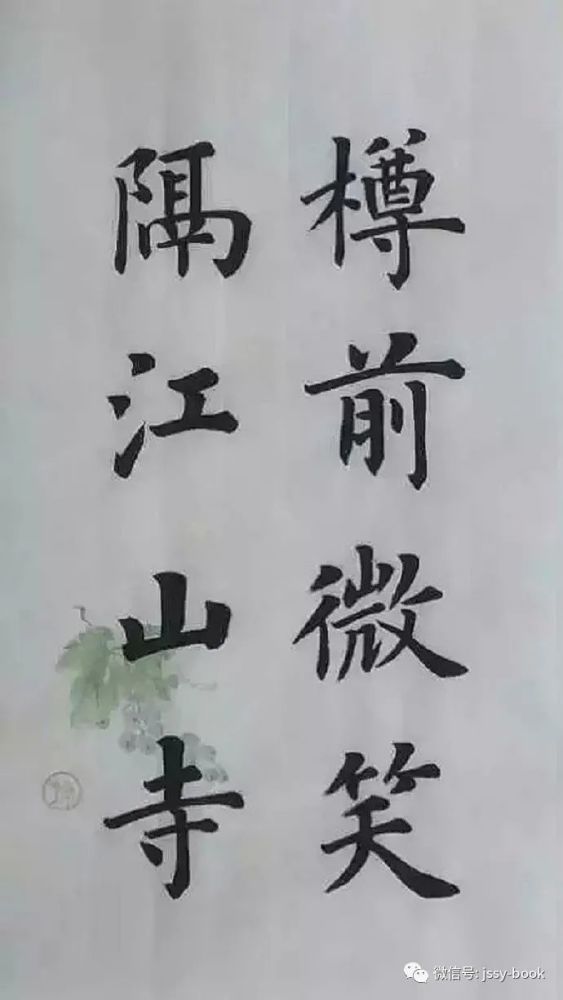 樽前微笑
隅江山寺
微信号: jssy-book